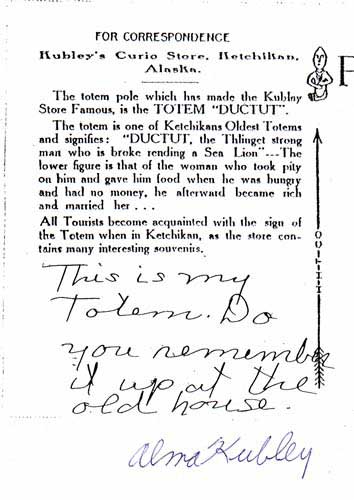 FOR CORRESPONDENCE
Kubley's Curio Store, Ketchikan,
Alaska.
The totem pole which has made the Kubley
Store Famous, is the TOTEM "DUCTUT".
The totem is one of Ketchikans Oldest Totems
and signifies: "DUCTUT, the Thlinget strong
man who is broke rending a Sea Lion"---The
lower figure is that of the woman who took pity
on him and gave him food when he was hungry
and had no money, he afterward became rich
and married her . . .
All Tourists become acquainted with the sign of
the Totem when in Ketchikan, as the store con-
tains many interesting souvenirs.
This is my
Totem. Do
you remember
it up at the
old house.
Alma Kubley